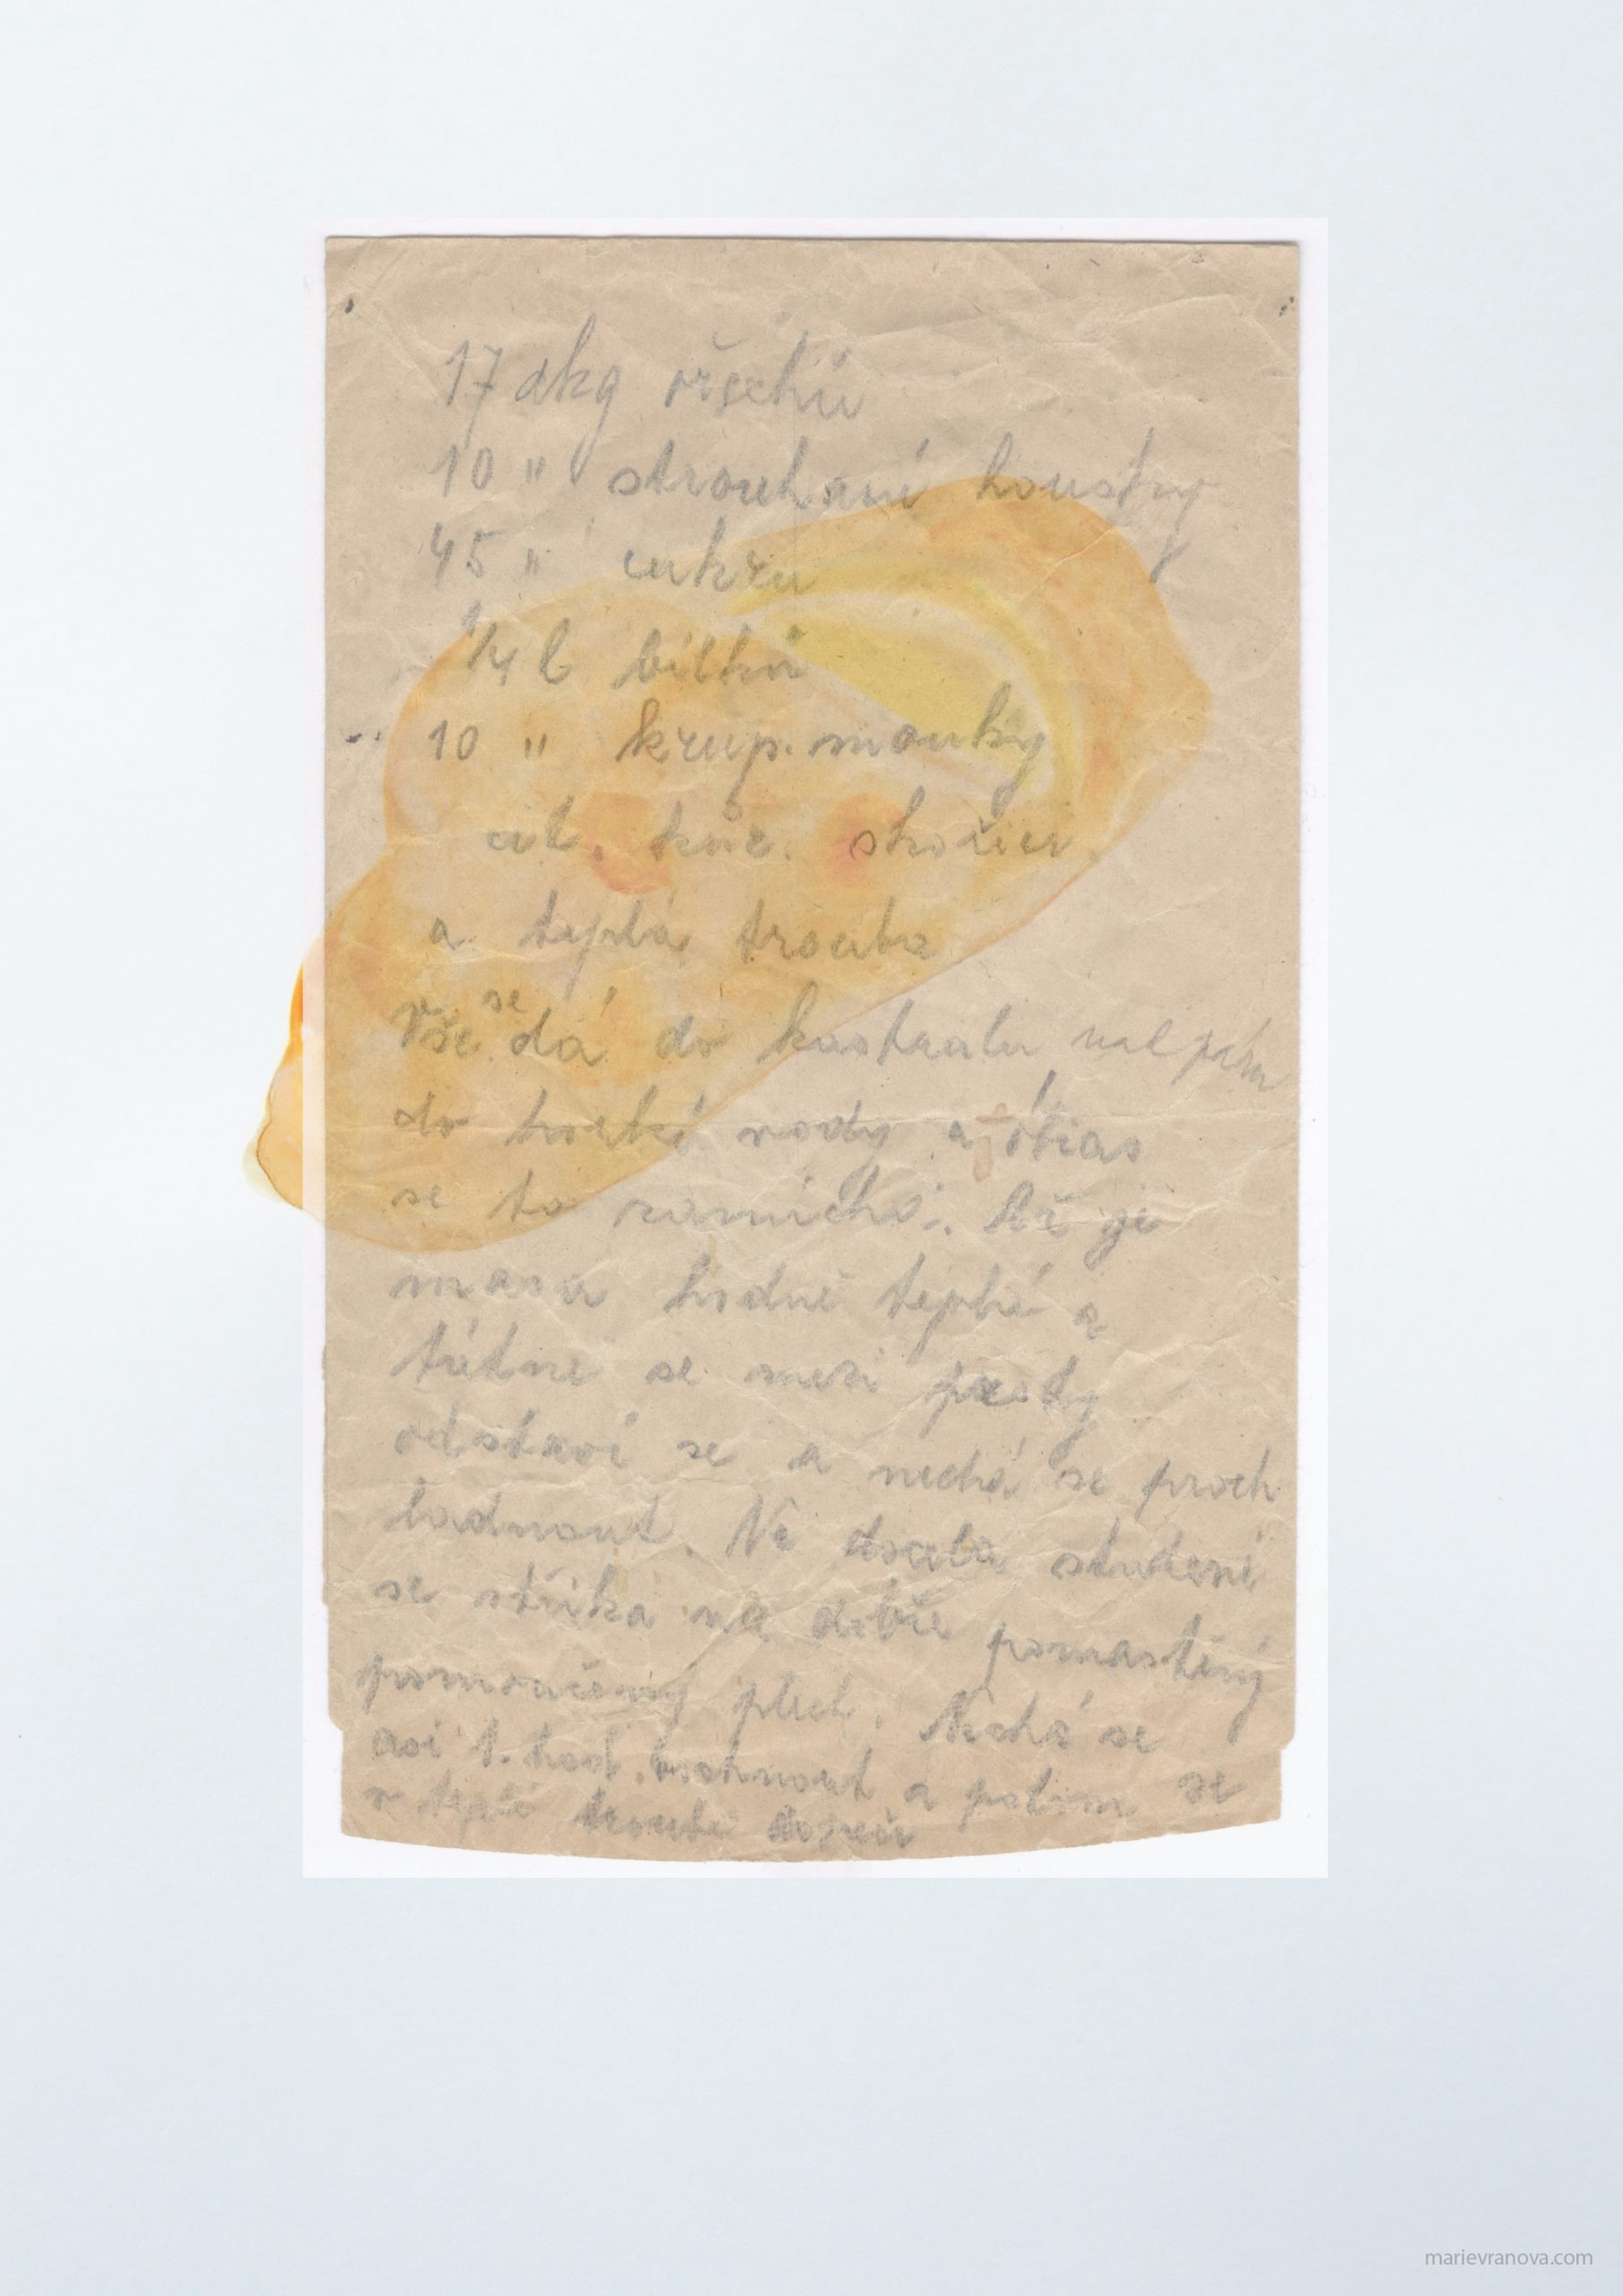 17 dkg ořechů
10 " strouhané housky
45 " cukru
1/4 l bílků
10 " krup. mouky
cit. kůr. skořici
a teplá trouba
Vše se dá do kastrolu nad páru
do horké vody a občas
se to zamíchá. Až je
masa hodně teplá a
táhne se mezi prsty
odstaví se a nechá se proch
ladnout. Ne docela studené
se stříká na dobře pomastěný
pomoučený plech. Nechá se
asi 1. hod. oschnout a potom se
v teplé troubě dopeče
marievranova.com